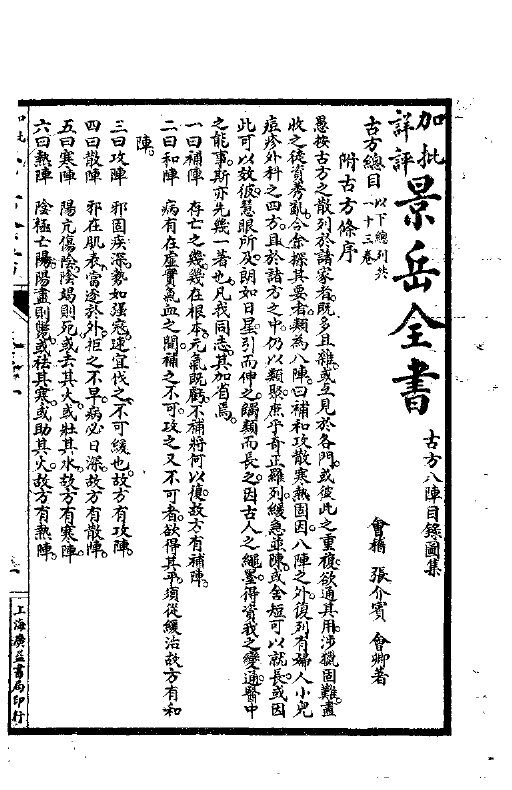 加批
詳評
景岳全書
古方八陣目錄圖集
會稽 張介賓 會卿著
古方總目 以下總列共
一十三卷
附古方條序
愚按古方之散列於諸家者既多且雜或互見於各門或彼此之重複欲通其用涉獵固難盡
收之徒資莠亂今余採其要者類為八陣曰補和攻散寒熱固因八陣之外復列有婦人小兒
痘疹外科之四方且於諸方之中仍以類聚庶乎奇正羅列緩急並陳或舍短可以就長或因
此可以效彼慧眼所及朗如日星引而伸之觸類而長之因古人之繩墨得資我之變通醫中
之能事斯亦先幾一著也凡我同志其加省焉
一曰補陣 存亡之幾幾在根本元氣既虧不補將何以復故方有補陣
二曰和陣 病有在虛實氣血之間補之不可攻之又不可者欲得其平須從緩治故方有和
陣
三曰攻陣 邪固疾深勢如强寇速宜伐之不可緩也故方有攻陣
四曰散陣 邪在肌表當逐於外拒之不早病必日深故方有散陣
五曰寒陣 陽亢傷陰陰竭則死或去其火或壯其水故方有寒陣
六曰熱陣 陰極亡陽陽盡則斃或祛其寒或助其火故方有熱陣
上海廣益書局印行